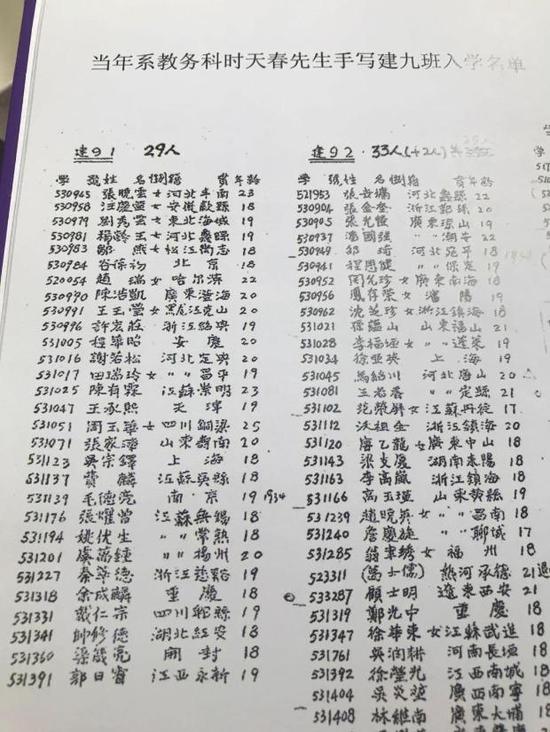 当年系教务科时天春先生手写建九班入学名单
建91 29人
学號 姓名 性別 籍貫 年龄
530943 張曉雲 女 河北丰南 23
530958 汪慶雲 女 安徽歙縣 18
530979 劉秀雲 女 東北海城 19
530981 楊 玉 女 河北蠡縣 19
530983 鄒 燕 女 松江尚志 18
530984 谷葆初 北京 18
520054 趙 瑞 女 哈尔濱 22
530990 陳浩凱 廣東澄海 20
530991 王玉瑩 女 黑龙江克山 20
530996 許宏莊 浙江紹興 19
531005 程華昭 安慶 20
531016 謝若松 河北定興 20
531017 田瑞玲 女 〃 昌平 19
531025 陳有霖 江蘇崇明 23
531047 王承熙 天津 19
531051 周玉華 女 四川銅梁 25
531071 張家 山東 南 20
531123 吳宗鐸 上海 18
531137 費麟 江蘇吳縣 18
531139 毛德亮 南京 19 1934
531176 張耀曾 江蘇無锡 18
531194 姚优生 〃 常熟 18
531201 虞 鍾 〃 揚州 20
531227 秦 德 浙江慈谿 19
531318 余成麟 重慶 18
531331 戴仁宗 四川郫縣 19
531341 帥修德 湖北红安 18
531360 梁 亮 開封 18
531391 郭日睿 江西永新 19
建92 33人(+2人)
學號 姓名 性別 籍貫 年龄
521953 張 河北蠡縣 22
530904 張金奎 浙江鄞縣 20
530905 張光愷 廣東瓊山 19
530937 潘國強 〃 潮安 22
530949 邹琦 河北宛平 18
530941 程恩健 〃 保定 19
530952 周允珍 女 廣東南海 18
530956 鳳存榮 女 瀋陽 19
530962 沈芝珍 女 浙江鎮海 18
531021 孫蘊山 山東福山 21
531028 李福 女 〃 蓬萊 19
531034 徐亞英 上海 19
531045 馬紹川 河北唐山 20
531081 王若 〃 定縣 21
531102 范榮屏 女 江蘇丹徒 17
531112 沃祖全 浙江鎮海 20
531120 唐乙龍 女 廣東中山 18
531143 梁支慶 湖南耒陽 18
531163 李高嵐 浙江鎮海 18
531166 高玉瓊 山東黄縣 19
531239 趙曉英 女 〃 昌南 18
531240 詹慶旋 〃 聊城 17
531285 翁宋綉 女 福州 18
523311 (萬士儒) 熱河承德 21 退
533287 顧士明 遼東西安 21
531319 鄭光中 重慶 18
531347 徐華東 女 江蘇武進 18
531761 吳潤耕 河南長垣 18
531392 徐瑩光 江西南城 18
531404 吳炎堃 廣西南寧 18
531408 林維南 廣東大埔 18